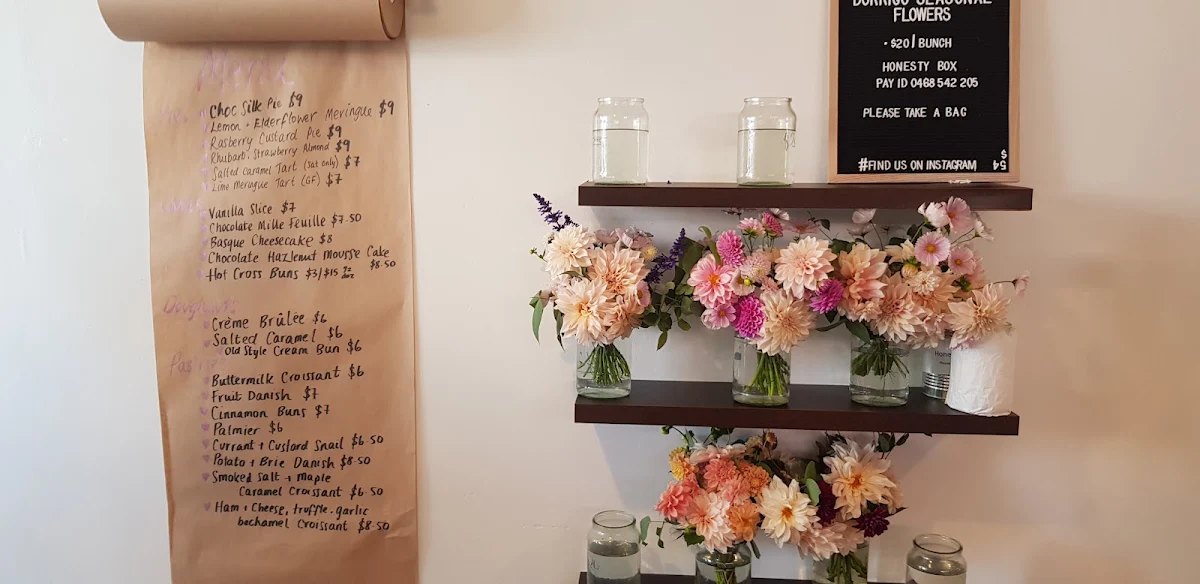 Menu
Choc Silk Pie $9
Lemon + Elderflower Meringue $9
Rasberry Custard Pie $9
Rhubarb, Strawberry Almond $9
Salted Caramel Tart (Sat only) $7
Lime Meringue Tart (GF) $7
Vanilla Slice $7
Chocolate Mille Feuille $7.50
Basque Cheesecake $8
Chocolate Hazlenut Mousse Cake
$8.50
Hot Cross Buns $3/$15
Doughnuts
Crème Brûlée $6
Salted Caramel $6
Old Style Cream Bun $6
Buttermilk Croissant $6
Fruit Danish $7
Cinnamon Buns $7
Palmier $6
Currant + Custard Snail $6.50
Potato + Brie Danish $8.50
Smoked Salt + Maple
Caramel Croissant $6.50
Ham + Cheese, truffle, garlic
bechamel Croissant $8.50
DORRIGO SEASONAL
FLOWERS
· $20/ BUNCH
HONESTY BOX
PAY ID 0468 542 205
PLEASE TAKE A BAG
#FIND US ON INSTAGRAM